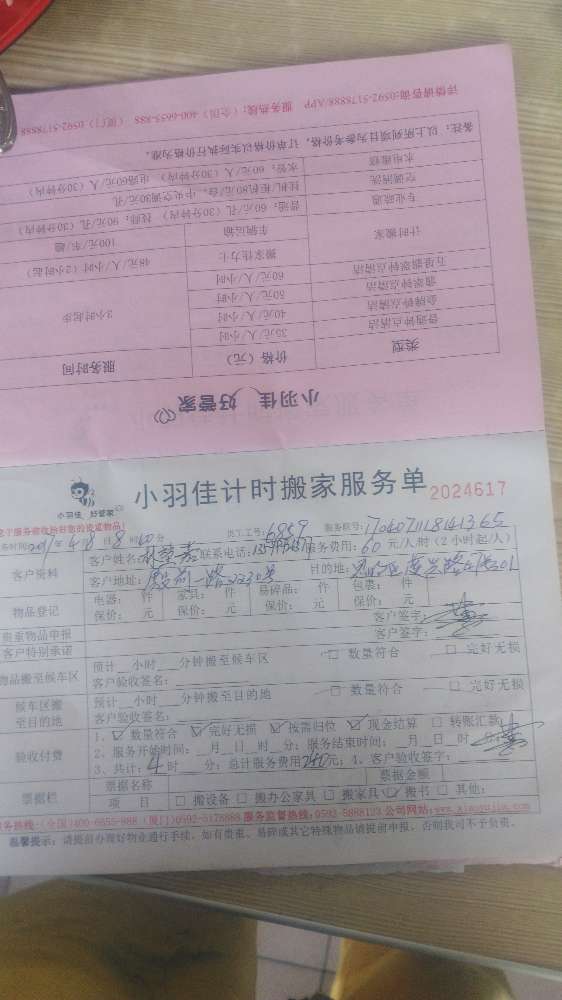 详情请咨询:0592-5178888/APP 服务热线:(全国)400-6655-888 (厦门)0592-5178888
备注:以上所列项目为参考价格,订单价格以实际执行价格为准。
水电维修 水管:60元/人(30分钟内) 电路60元/人(30分钟内)
空调清洗 中央空调30元/孔
专业疏通 普通:60元/孔(30分钟内) 90元/孔(30分钟内)
计时搬家 车辆运输 100/元/车/趟
搬家佳力士 48元/人/小时(2小时起)
五星翡翠钟点清洁 60元/人/小时
翡翠钟点清洁 50元/人/小时
金牌钟点清洁 40元/人/小时 2小时起步
普通钟点清洁 35元/人/小时
类型 价格(元) 服务时间
小羽佳 好管家
小羽佳 好管家
小羽佳计时搬家服务单 2024617
员工工号:6859 服务联号:
客户资料 客户姓名: 联系电话: 服务费用:60元/人/时(2小时起/人)
客户地址: 目的地:
物品登记 电器: 件 家具: 件 易碎品: 件 包裹: 件
保价: 元 保价: 元 保价: 元 保价: 元
贵重物品申报 客户签字:
客户特别承诺 客户签字:
物品搬至候车区 预计__小时__分钟搬至候车区 □ 数量符合 □ 完好无损
客户验收签名:
候车区搬至目的地 预计__小时__分钟搬至目的地 □ 数量符合 □ 完好无损
客户验收签名:
验收付费 1、☑ 数量符合 ☑ 完好无损 ☑ 按需归位 ☑ 现金结算 □ 转账汇款
2、服务开始时间:__月__日__时__分;服务结束时间:__月__日__时__分;
3、共计:4时__分;总计服务费用240元;4、客户验收签字:
票据栏 票据名称 票据金额
项 目 □ 搬设备 □ 搬办公家具 □ 搬家具 ☑ 搬书 □ 其他:
服务热线:(全国)400-6655-888 (厦门)0592-5178888 服务监督热线:0592-5888123 公司网站:
温馨提示:请提前办理好物业通行手续,如有贵重、易碎或其它特殊物品请提前申报,否则我司不予负责。